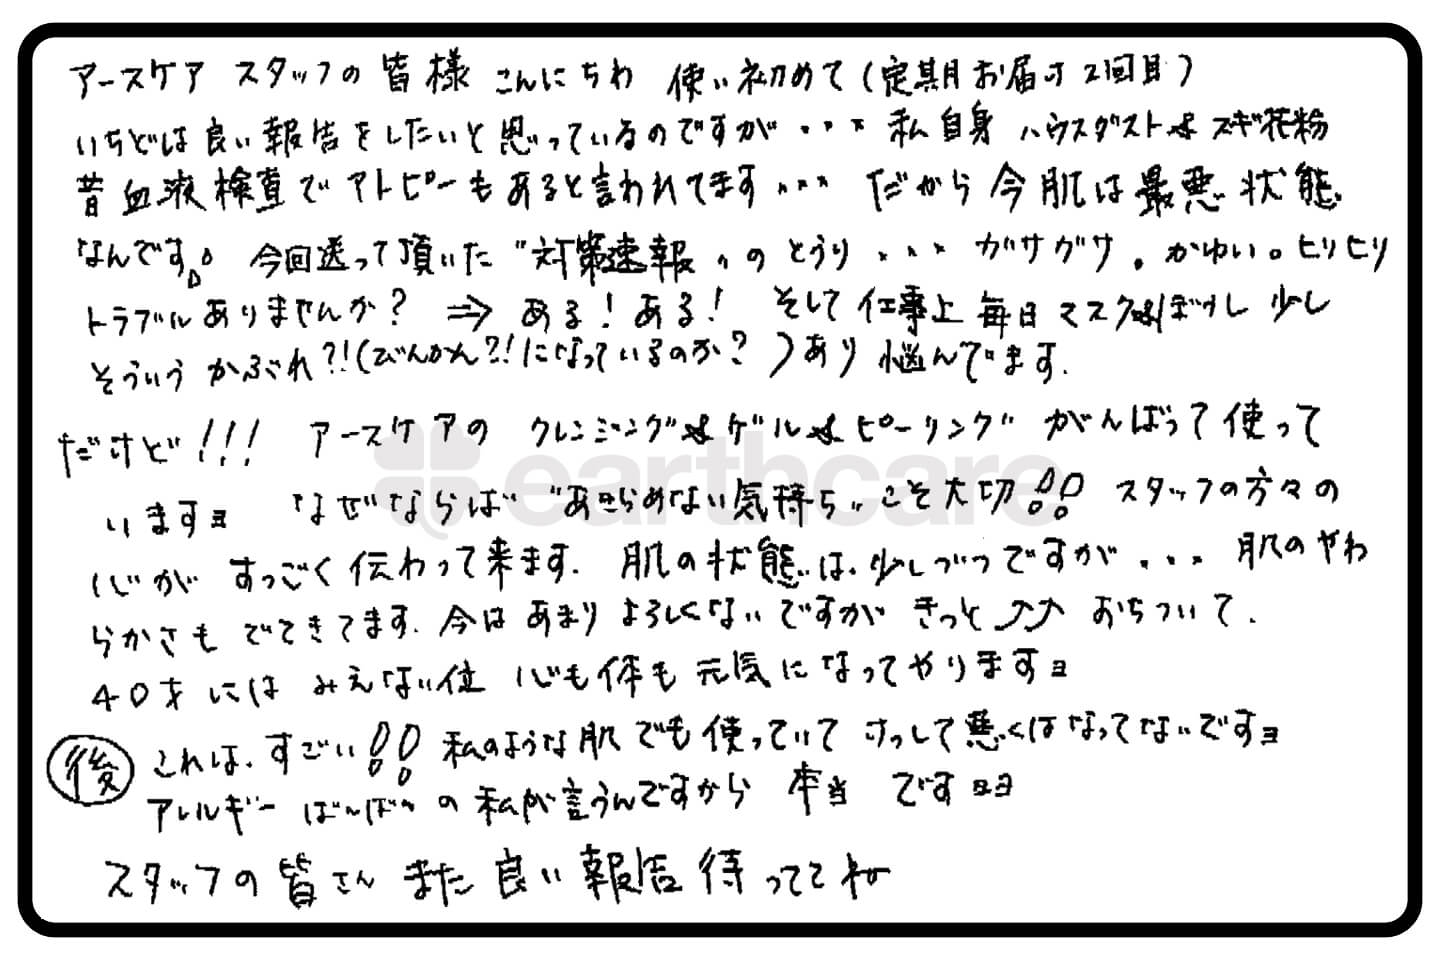 アースケア スタッフの 皆様 こんにちわ 使い初めて(定期お届け2回目)
いちどは良い報告をしたいと思っているのですが・・・私自身 ハウスダスト& スギ花粉
昔血液検査でアトピーもあると言われてます・・・だから今肌は最悪状態
なんです。今回送って頂いた"対策速報"のとうり・・・ガサガサ。かゆい。ヒリヒリ
トラブルありませんか?⇒ある!ある!そして仕事上毎日マスク&ぼうし少し
そういうかぶれ?!(びんかん?!になっているのか?)あり悩んでいます.
だけど!!! アースケアの クレンジング&ゲル&ピーリング がんばって使って
いますョ なぜならば"あきらめない気持ち"こそ大切!! スタッフの方々の
心が すっごく伝わって来ます. 肌の状態は、少しづつですが・・・肌のやわ
らかさも でてきてます. 今は あまり よろしくないですが きっと⤴⤴ おちついて.
40才には みえない位 心も体も元気になってやりますョ
後 これは、すごい!!私のような肌でも使っていて けっして悪くはなってないですョ
アレルギー ばーばーの私が言うんですから 本当 ですョョ
スタッフの皆さん また良い報告待っててネ
earthcare